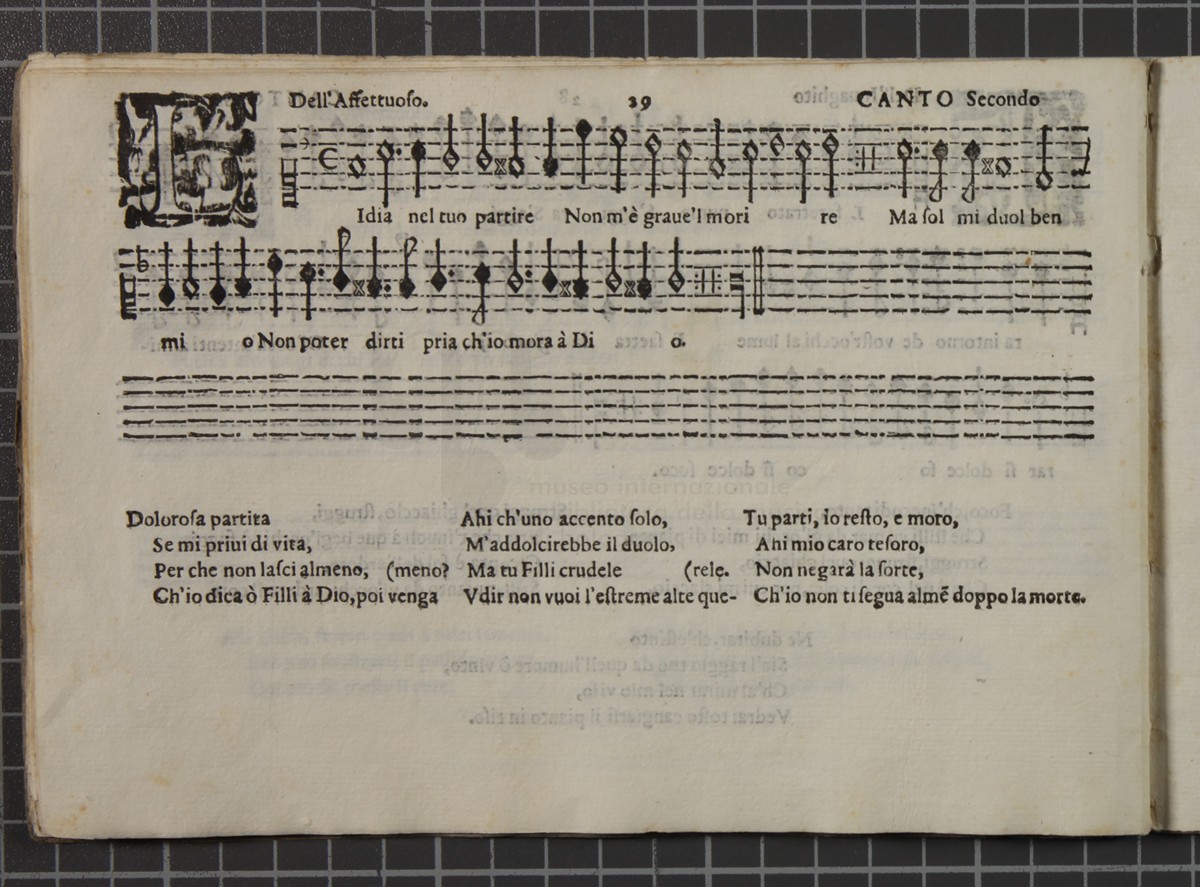 Dell'Affettuoso. 29 CANTO Secondo
Idia nel tuo partire Non m'è graue'l mori re Ma sol mi duol ben
mi o Non poter dirti pria ch'io mora à Di o.
museo internazionale
Dolorosa partita
Se mi priui di vita,
Per che non lasci almeno, (meno?
Ch'io dica ò Filli à Dio, poi venga
Ahi ch'uno accento solo,
M'addolcirebbe il duolo,
Ma tu Filli crudele (rele.
Vdir non vuoi l'estreme alte que-
Tu parti, io resto, e moro,
Ahi mio caro tesoro,
Non negarà la sorte,
Ch'io non ti segua almē doppo la morte.